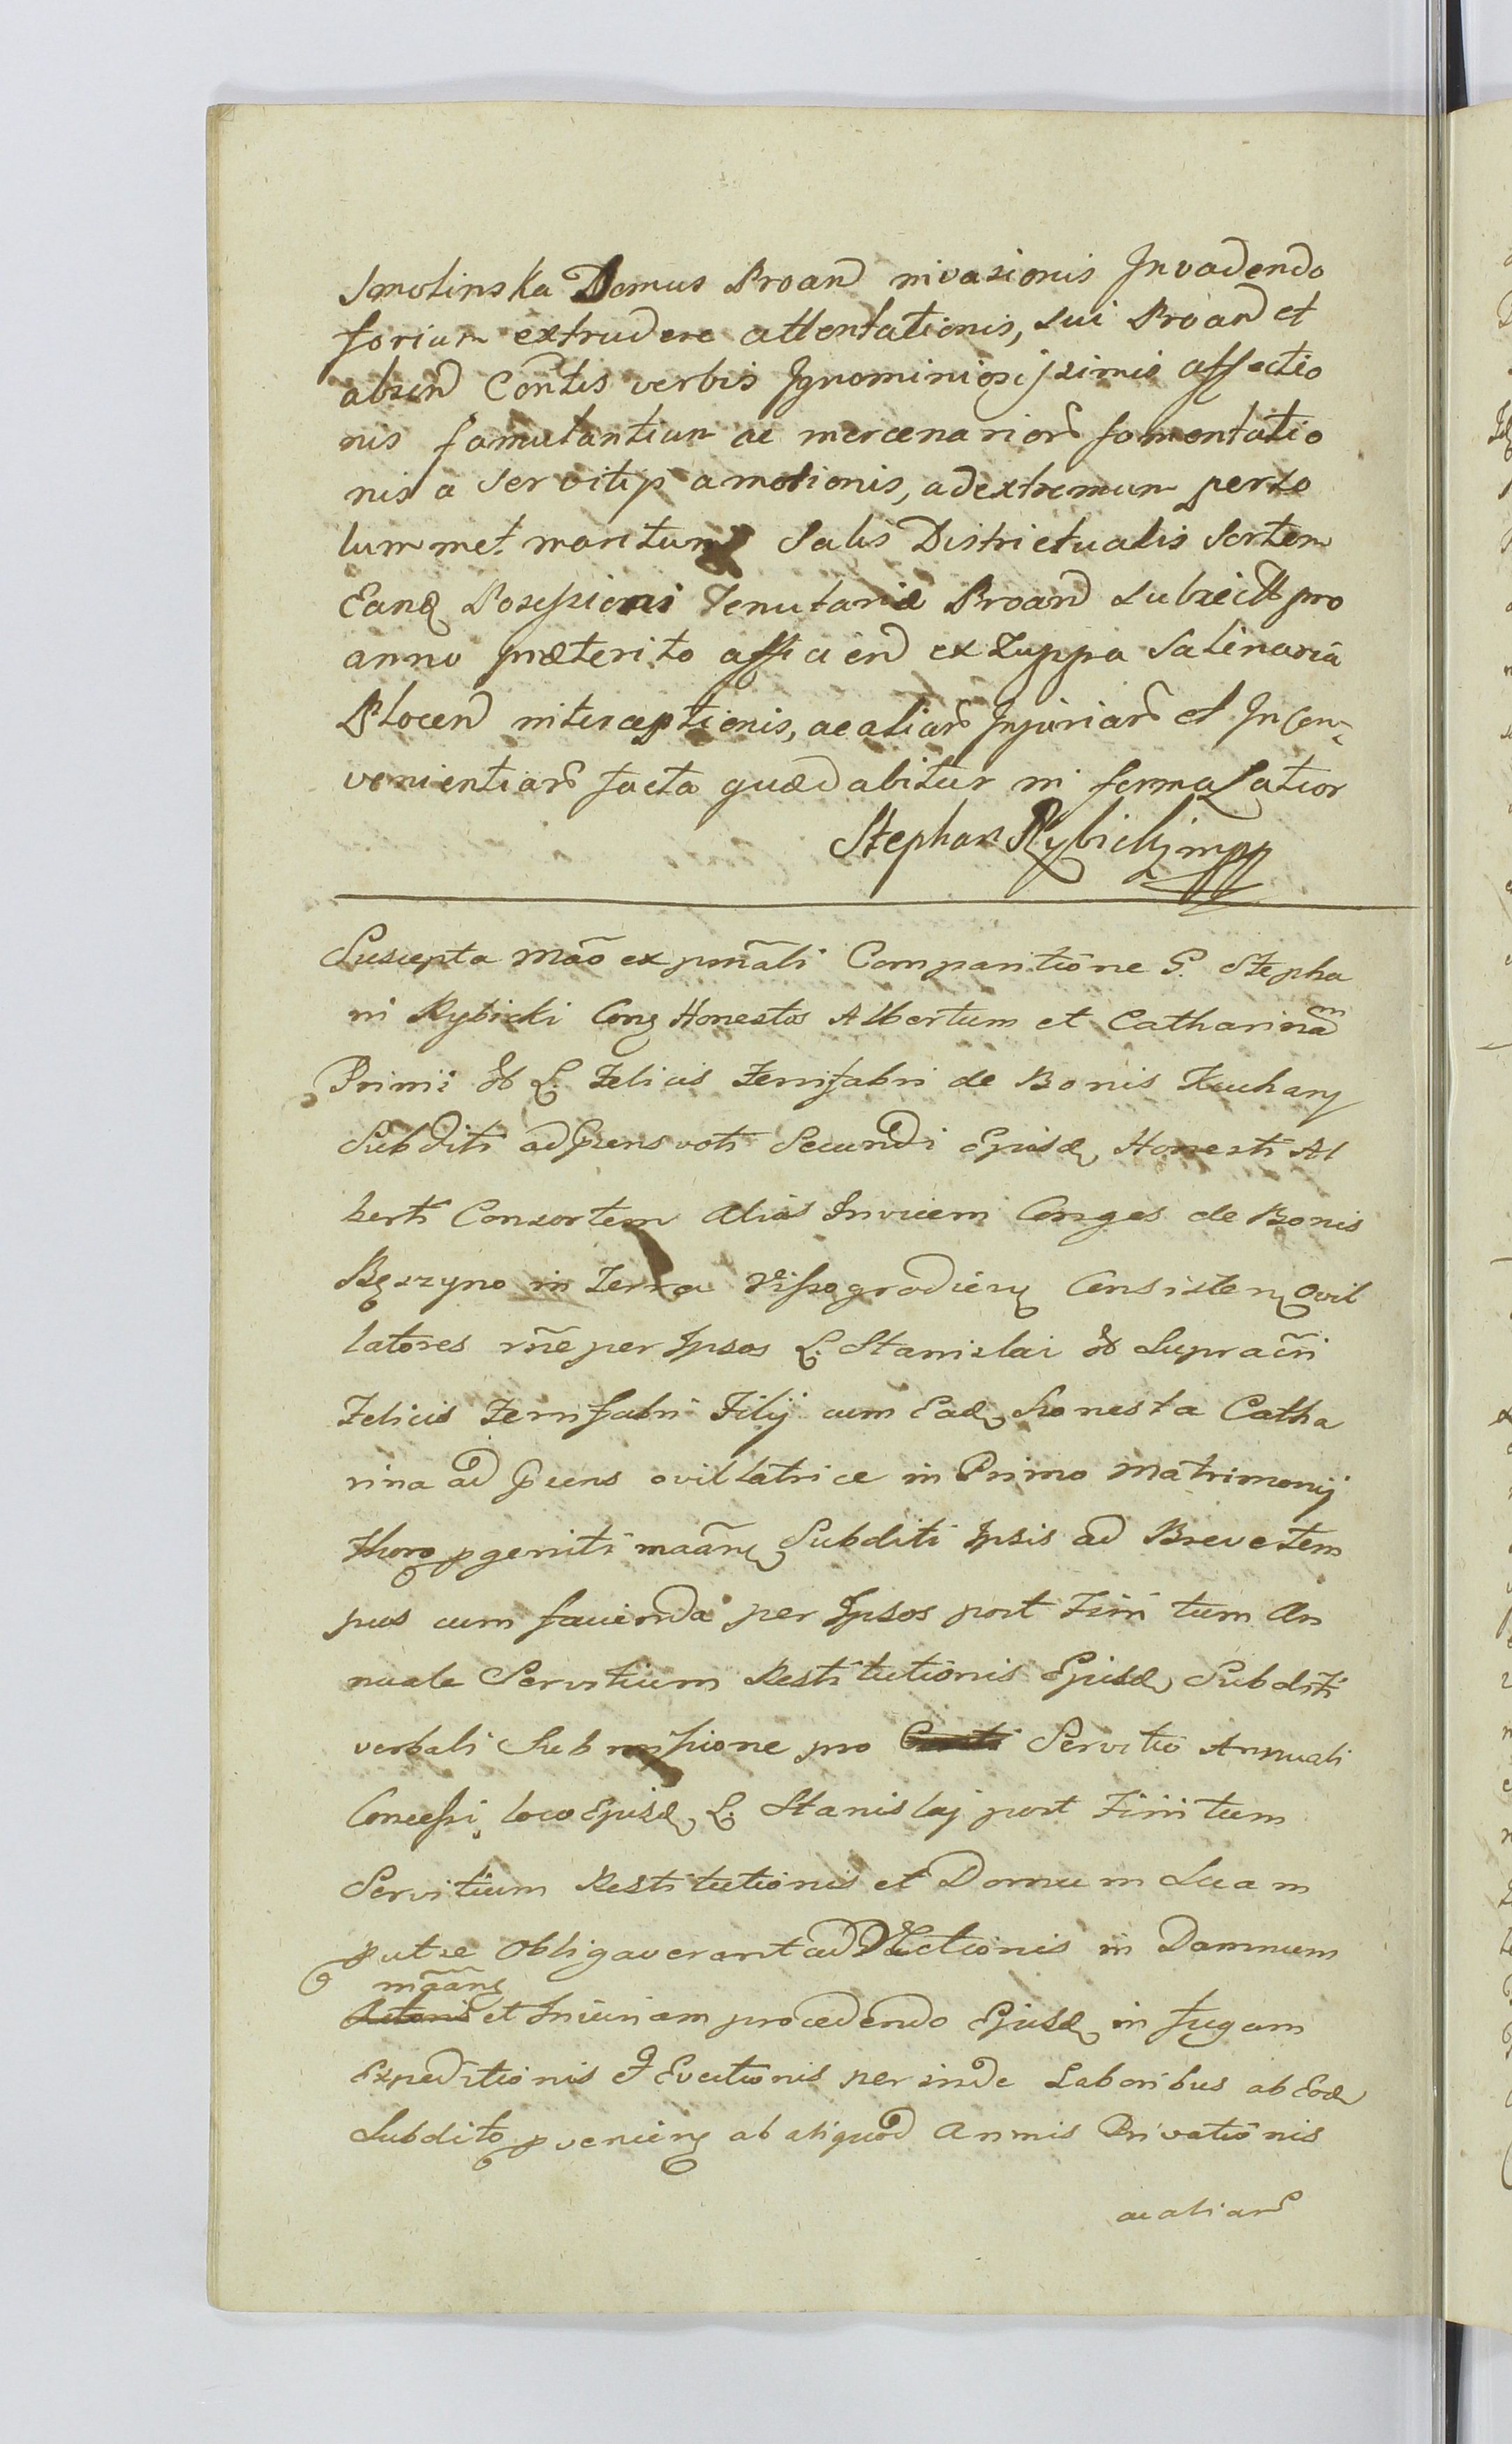 Smolinska Domus Proand invasionis Invadendo
forium extrudere attentationis, sui Proand et
absend Contis verbis Ignominiosissimis affectio
nis famulantium ac mercenarior fomentatio
nis a servitijs amotionis, ad extremum per so
lummet maritum Salis Districtualis Sortem
Eanq Possessioni Tenutariæ Proand subiect pro
anno præterito afficiend ex Zuppa Salinaria
Plocend interceptionis, ac aliar Injuriar et Incon-
venientiar facta quæ dabitur in forma Latior
Stephan Rybicki mpp
Suscepta Mão ex pnãli Comparitione G. Stepha
ni Rybicki Cong Honestos Albertum et Catharinãm
Primi Olim L. Felicis Ferrifabri de Bonis Kuchary
Subditi ad præns voti Secundi Ejusd Honesti Al
berti Consortem alias Invicem Conges de Bonis
in Terra Vissogradien Consisten Ovil
latores rñe per Ipsos L. Stanislai Olim Supracri
Felicis Ferrifabri Filij cum Ead Honesta Catha
rina ad præens ovillatrice in Primo Matrimonij
Thoro pgeniti maãn Subditi Ipsis ad Breve tem
pus cum facienda per Ipsos post Finitum An
nuale Servitium Restitutionis Ejusd Subditi
verbali Submissione pro Servitio Annuali
Concessi, loco Ejusd L. Stanislaj post Finitum
Servitium Restitutionis et Domum Suam
put se obligaverant ad Ductionis in Damnum
maãn
Actoris et Iniuriam procedendo Ejusd in fugam
Expeditionis et Evectionis perinde Laboribus ab Eod
Subdito pvenien ab aliquod Annis Privationis
ac aliar